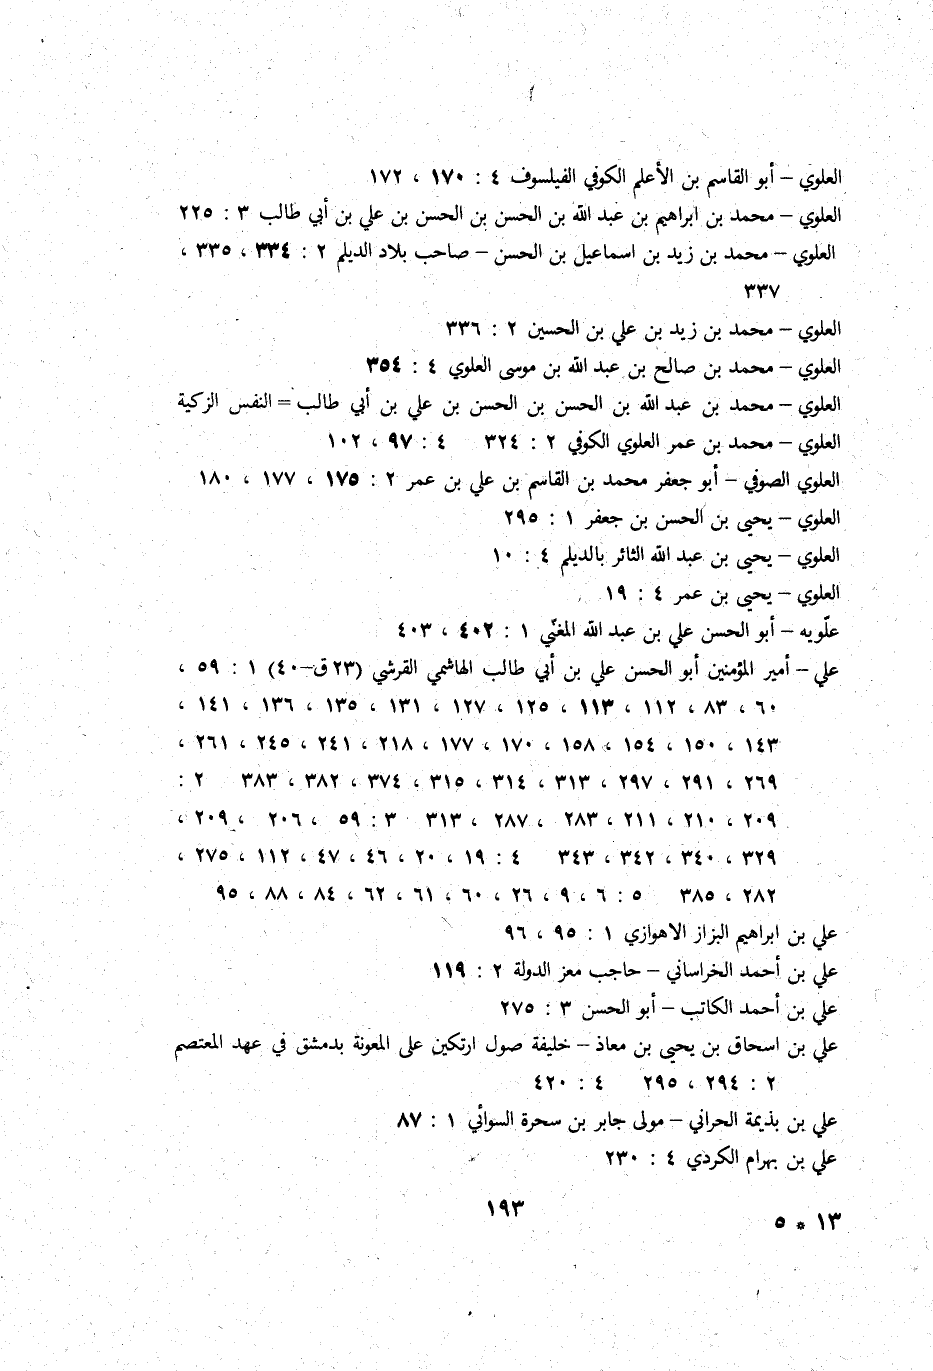 العلوي – أبو القاسم بن الأعلم الكوفي الفيلسوف ٤ : ١٧٠ ، ١٧٢
العلوي – محمد بن ابراهيم بن عبد الله بن الحسن بن الحسن بن علي بن أبي طالب ٣ : ٢٢٥
العلوي – محمد بن زيد بن اسماعيل بن الحسن – صاحب بلاد الديلم ٢ : ٣٣٤ ، ٣٣٥ ،
٣٣٧
العلوي – محمد بن زيد بن علي بن الحسين ٢ : ٣٣٦
العلوي – محمد بن صالح بن عبد الله بن موسى العلوي ٤ : ٣٥٤
العلوي – محمد بن عبد الله بن الحسن بن الحسن بن علي بن أبي طالب = النفس الزكية
العلوي – محمد بن عمر العلوي الكوفي ٢ : ٣٢٤ ٤ : ٩٧ ، ١٠٢
العلوي الصوفي – أبو جعفر محمد بن القاسم بن علي بن عمر ٢ : ١٧٥ ، ١٧٧ ، ١٨٠
العلوي – يحيى بن الحسن بن جعفر ١ : ٢٩٥
العلوي – يحيى بن عبد الله الثائر بالديلم ٤ : ١٠
العلوي – يحيى بن عمر ٤ : ١٩
علّويه – أبو الحسن علي بن عبد الله المغنّي ١ : ٤٠٢ ، ٤٠٣
علي – أمير المؤمنين أبو الحسن علي بن أبي طالب الهاشمي القرشي (٢٣ق–٤٠) ١ : ٥٩ ،
٦٠ ، ٨٣ ، ١١٢ ، ١١٣ ، ١٢٥ ، ١٢٧ ، ١٣١ ، ١٣٥ ، ١٣٦ ، ١٤١ ،
١٤٣ ، ١٥٠ ، ١٥٤ ، ١٥٨ ، ١٧٠ ، ١٧٧ ، ٢١٨ ، ٢٤١ ، ٢٤٥ ، ٢٦١ ،
٢٦٩ ، ٢٩١ ، ٢٩٧ ، ٣١٣ ، ٣١٤ ، ٣١٥ ، ٣٧٤ ، ٣٨٢ ، ٣٨٣ ٢ :
٢٠٩ ، ٢١٠ ، ٢١١ ، ٢٨٣ ، ٢٨٧ ، ٣١٣ ٣ : ٥٩ ، ٢٠٦ ، ٢٠٩ ،
٣٢٩ ، ٣٤٠ ، ٣٤٢ ، ٣٤٣ ٤ : ١٩ ، ٢٠ ، ٤٦ ، ٤٧ ، ١١٢ ، ٢٧٥ ،
٢٨٢ ، ٣٨٥ ٥ : ٦ ، ٩ ، ٢٦ ، ٦٠ ، ٦١ ، ٦٢ ، ٨٤ ، ٨٨ ، ٩٥
علي بن ابراهيم البزاز الاهوازي ١ : ٩٥ ، ٩٦
علي بن أحمد الخراساني – حاجب معز الدولة ٢ : ١١٩
علي بن أحمد الكاتب – أبو الحسن ٣ : ٢٧٥
علي بن اسحاق بن يحيى بن معاذ – خليفة صول ارتكين على المعونة بدمشق في عهد المعتصم
٢ : ٢٩٤ ، ٢٩٥ ٤ : ٤٢٠
علي بن بذيمة الحراني – مولى جابر بن سحرة السوائي ١ : ٨٧
علي بن بهرام الكردي ٤ : ٢٣٠
١٩٣
١٣ * ٥